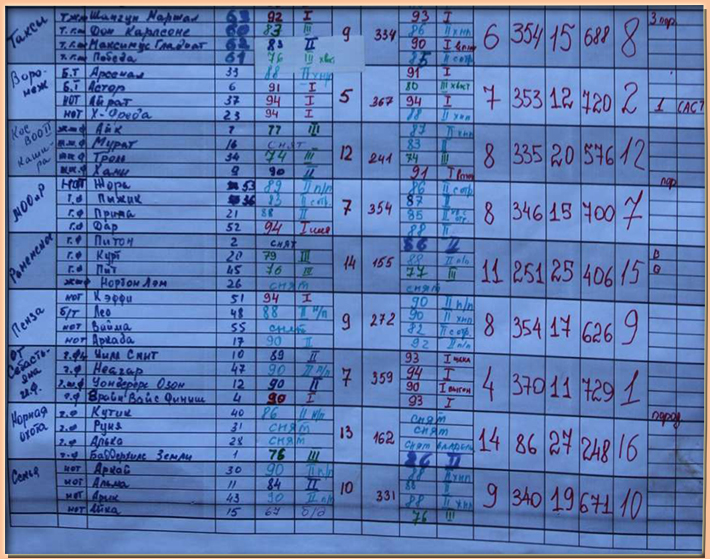 Таксы т.жш Шангун Маршал 63 92 I 9 334 93 I 6 354 15 688 8 3 пор
т.гш Дон Карлеоне 60 83 III 86 II хнр
т.гш Максимус Гладиат 62 83 II 90 I
т.гш Победа 61 76 III хвст 85 II сотр
Воронеж Б.Т Арсенал 39 88 II хнр 5 367 91 I 7 353 12 720 2
Б.Т Астор 6 91 I 80 III хвст 1 (ЛАСТ
нот Айрат 37 94 I 94 I
нот Х-Фреда 23 94 I 88 II хнр
Кос ВООП Кашира ж.ф Айк 7 77 III 12 241 87 II хнр 8 335 20 576 12
ж.ф Мурат 16 снят 83 II
ж.ф Тром 34 74 III 74 III
ж.ф Хами 9 90 II 91 I
МООиР нот Жора 53 89 II п/п 7 354 86 II сотр 8 346 15 700 7 пор
г.ф Пыжик 36 83 II сотр 87 II
г.ф Прима 21 88 II 85 II
г.ф Дар 52 94 I 88 II
Раменское г.ф Питон 2 снят 14 155 86 II 11 251 25 406 15
г.ф Курт 20 79 III 88 II п/п
г.ф Пит 45 76 III 77 III
ж.ф Нортон Лем 26 снят снят
Пенза нот Кэффи 51 94 I 9 272 90 II п/п 8 354 17 626 9
б/т Лео 48 88 II п/п 90 II хнр
нот Вайма 55 снят 82 II сотр
нот Аркада 17 90 II 92 II п/п
От Себастьяна г.ф. г.ф Уилл Смит 10 89 II 7 359 93 I 4 370 11 729 1
г.ф Неагар 47 90 II п/п 94 I
г.ф Уондерфр Озон 12 90 II 90 I выгон
г.ф Брайн Вайс Финиш 4 90 I 93 I
Норная охота г.ф Кутик 40 86 II п/п 13 162 снят 14 86 27 248 16 пород
г.ф Руня 31 снят снят
г.ф Алька 28 снят снят
г.ф Баддервикс Земли 1 76 III 86 II
Сенеж нот Аркай 30 90 II п/п 10 331 88 II хнр 9 340 19 671 10
нот Альма 11 84 II 88 II
нот Арык 43 90 II п/п 88 II хнр
нот Айка 15 67 б/д 76 III